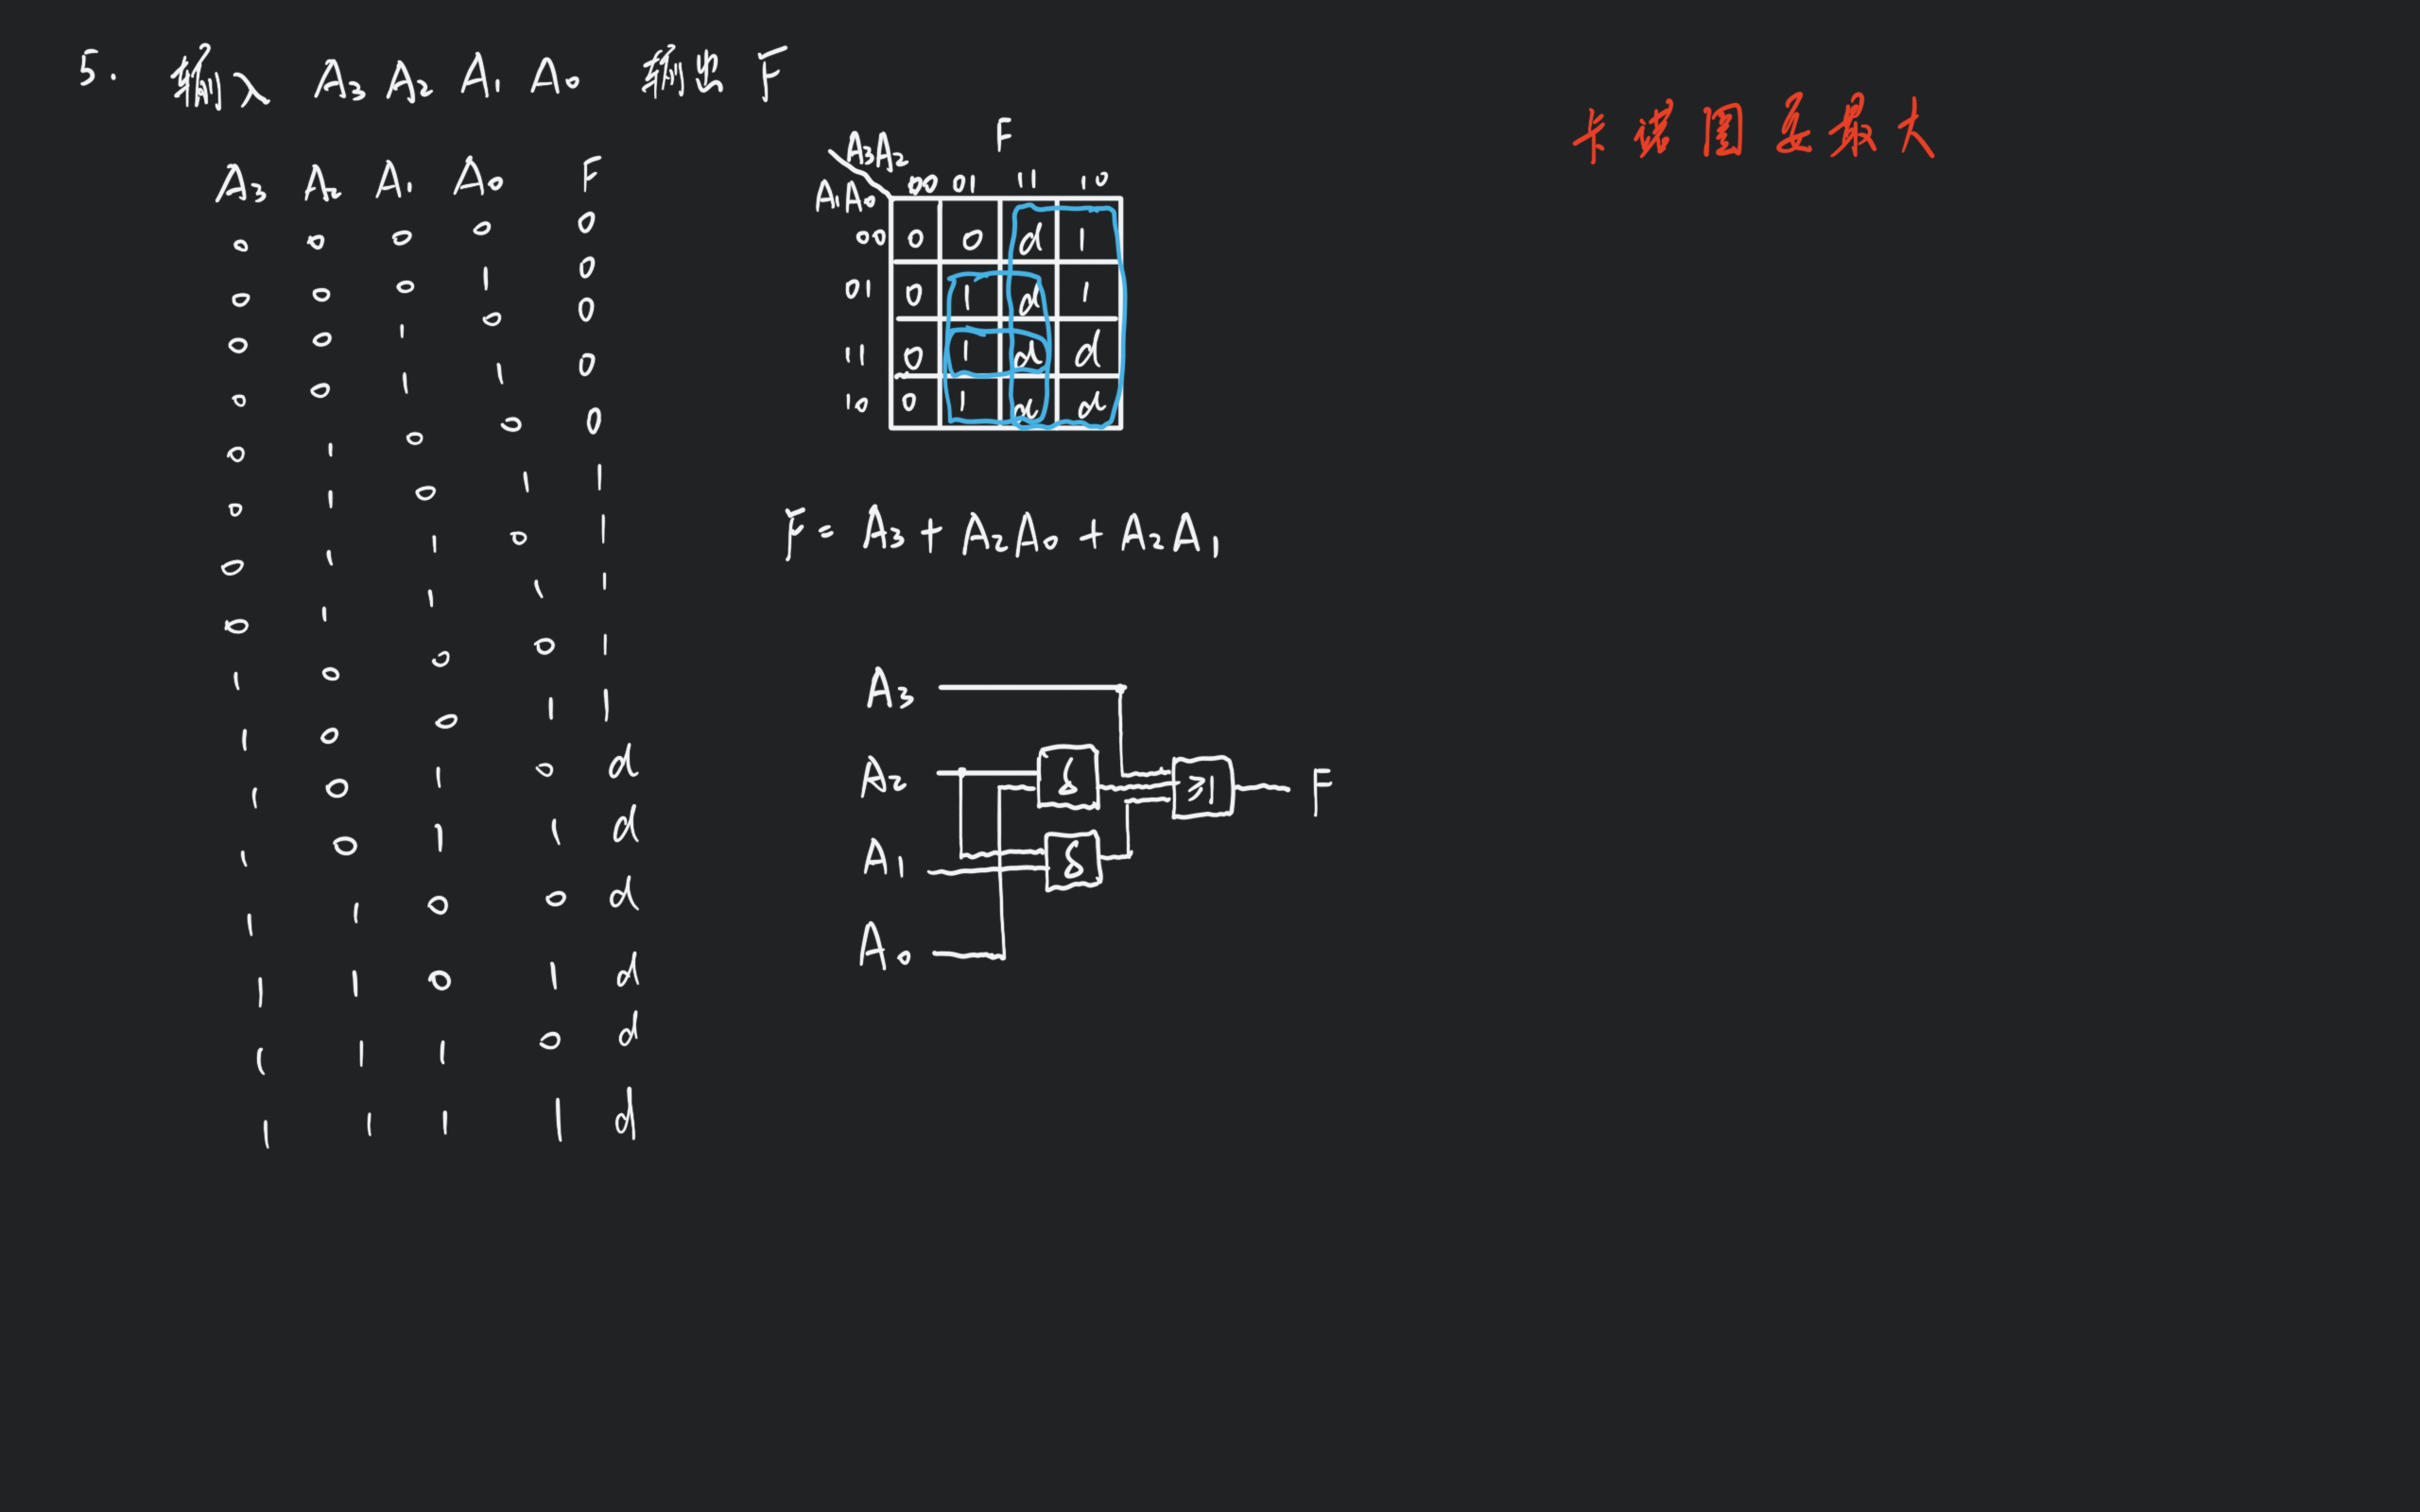 5. 输入 A₃ A₂ A₁ A₀ 输出 F
卡诺圈要最大
A₃ A₂ A₁ A₀ F
0 0 0 0 0
0 0 0 1 0
0 0 1 0 0
0 0 1 1 0
0 1 0 0 0
0 1 0 1 1
0 1 1 0 1
0 1 1 1 1
1 0 0 0 1
1 0 0 1 1
1 0 1 0 d
1 0 1 1 d
1 1 0 0 d
1 1 0 1 d
1 1 1 0 d
1 1 1 1 d
F
A₃A₂
A₁A₀ 00 01 11 10
00 0 0 d 1
01 0 1 d 1
11 0 1 d d
10 0 1 d d
F = A₃ + A₂A₀ + A₂A₁
A₃
A₂ & ≥1 F
A₁ &
A₀